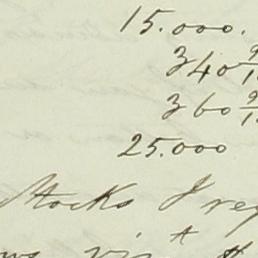 15.000.
340 9/1
360 9/1
25.000
Stocks I rep